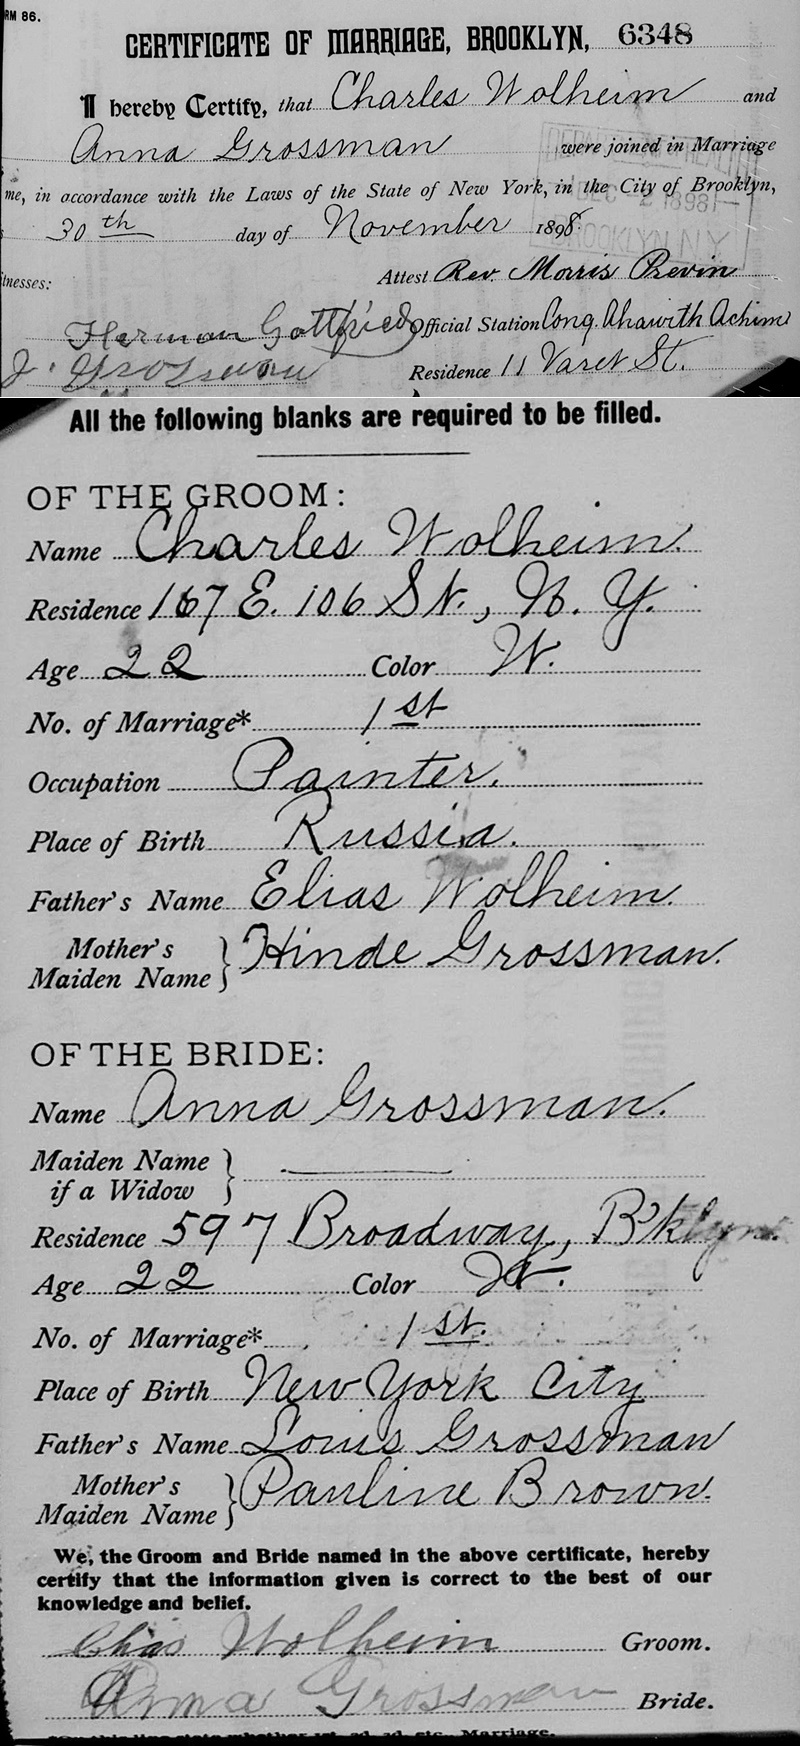 RM 86.
CERTIFICATE OF MARRIAGE, BROOKLYN, 6348
I hereby Certify, that Charles Wolheim and
Anna Grossman were joined in Marriage
me, in accordance with the Laws of the State of New York, in the City of Brooklyn,
30th day of November 1898.
DEC -2 1898
BROOKLYN N.Y.
Attest Rev. Morris Previn
tnesses:
Herman Gottfried Official Station Cong. Ahawith Achim
J. Grossman Residence 11 Varet St.
All the following blanks are required to be filled.
OF THE GROOM:
Name Charles Wolheim.
Residence 167 E. 106 St., N. Y.
Age 22 Color W.
No. of Marriage* 1st
Occupation Painter.
Place of Birth Russia.
Father's Name Elias Wolheim.
Mother's
Maiden Name } Hinde Grossman.
OF THE BRIDE:
Name Anna Grossman.
Maiden Name
if a Widow } ———
Residence 597 Broadway, B'klyn.
Age 22 Color W.
No. of Marriage* 1st.
Place of Birth New York City
Father's Name Louis Grossman
Mother's
Maiden Name } Pauline Brown.
We, the Groom and Bride named in the above certificate, hereby
certify that the information given is correct to the best of our
knowledge and belief.
Chas Wolheim Groom.
Anna Grossman Bride.